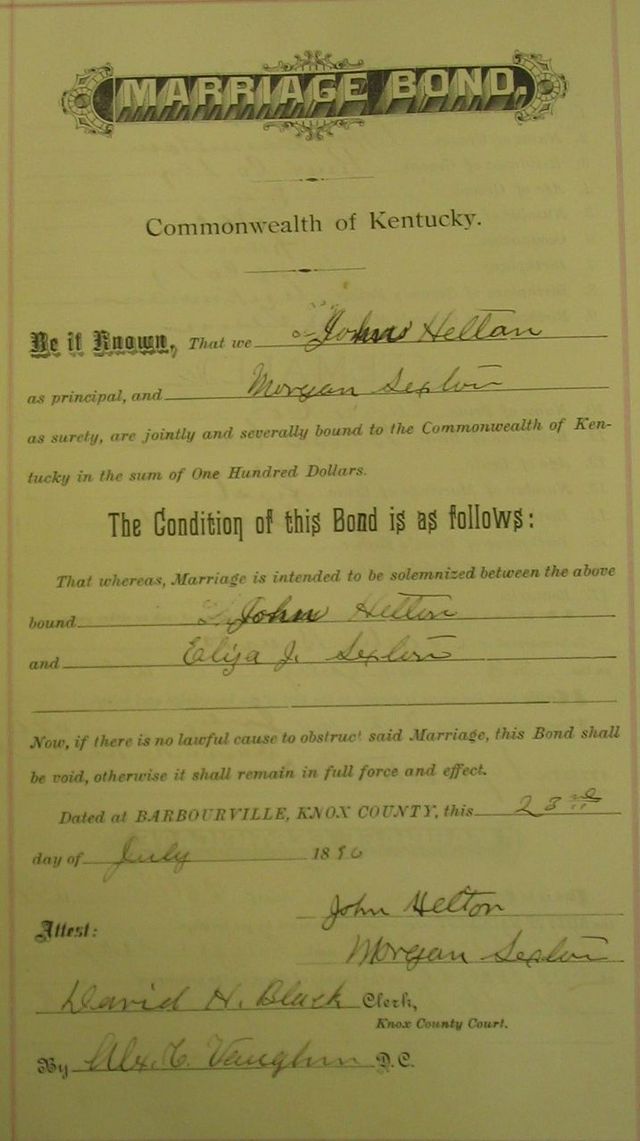 MARRIAGE BOND.
Commonwealth of Kentucky.
Be it Known, That we John Helton
as principal, and Morgan Sexton
as surety, are jointly and severally bound to the Commonwealth of Ken-
tucky in the sum of One Hundred Dollars.
The Condition of this Bond is as follows:
That whereas, Marriage is intended to be solemnized between the above
bound John Helton
and Eliza J. Sexton
Now, if there is no lawful cause to obstruct said Marriage, this Bond shall
be void, otherwise it shall remain in full force and effect.
Dated at BARBOURVILLE, KNOX COUNTY, this 23rd
day of July 1890
John Helton
Attest:
Morgan Sexton
David H. Black Clerk,
Knox County Court.
By Alx. T. Vaughn D.C.